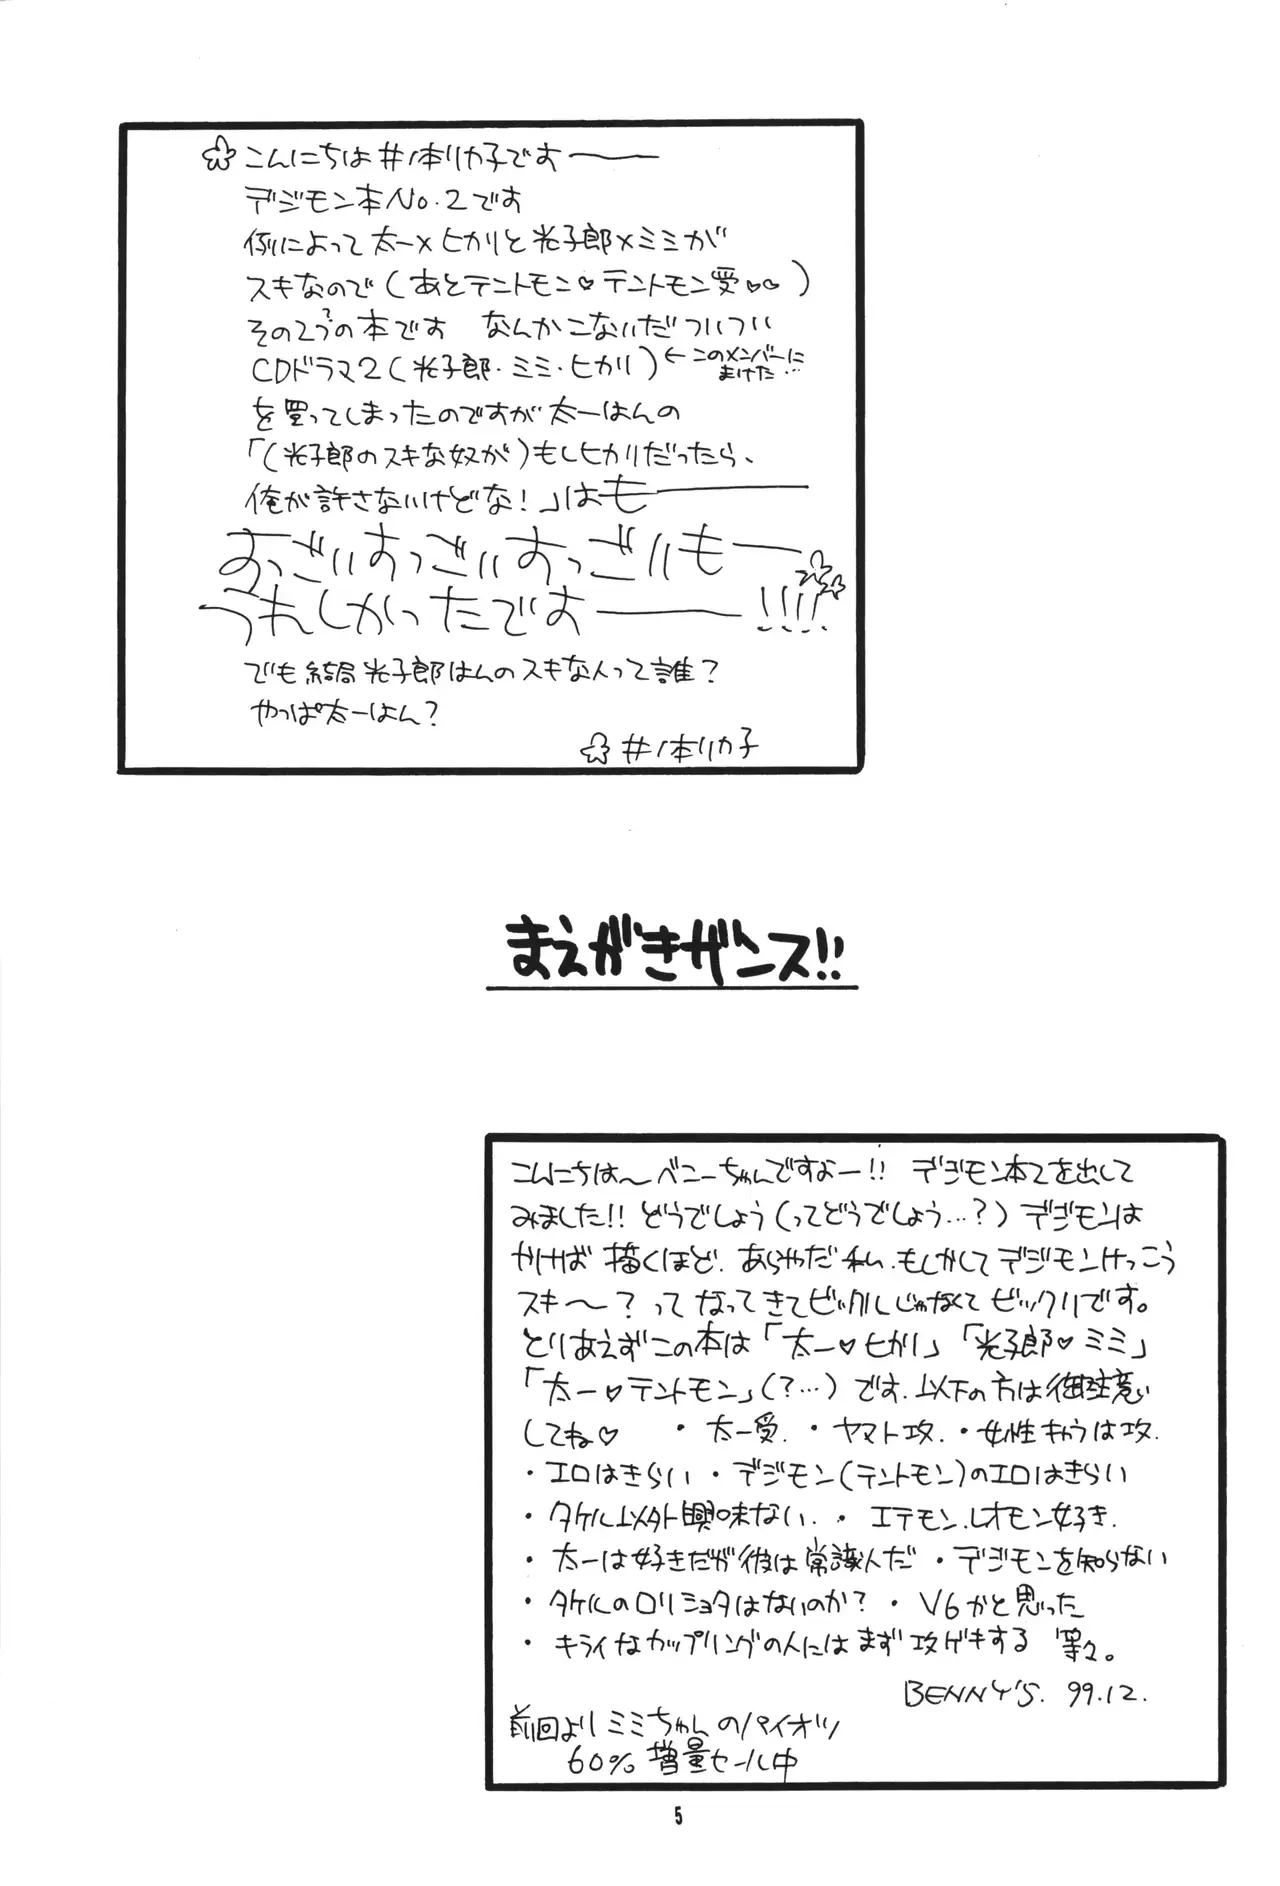 ☆こんにちは井ノ本リカ子です――
デジモン本No.2です
例によって太一×ヒカリと光子郎×ミミが
スキなので(あとテントモン♡テントモン愛♡♡)
その2つ?の本です なんかこないだついつい
CDドラマ2(光子郎・ミミ・ヒカリ)←このメンバーに
まけた…
を買ってしまったのですが太一はんの
「(光子郎のスキな奴が)もしヒカリだったら、
俺が許さないけどな!」はも――
すっごいすっごいすっごいも――
うれしかったです――!!!!
でも結局光子郎はんのスキな人って誰?
やっぱ太一はん?
☆井ノ本リカ子
まえがきザンス!!
こんにちは〜ベニーちゃんですよー!! デジモン本2を出して
みました!! どうでしょう(ってどうでしょう…?)デジモンは
かけば描くほど、あらやだ私、もしかしてデジモンけっこう
スキ〜?ってなってきてビックルじゃなくてビックリです。
とりあえずこの本は「太一♡ヒカリ」「光子郎♡ミミ」
「太一♡テントモン」(?…)です。以下の方は御注意
してね♡ ・太一受. ・ヤマト攻. ・女性キャラは攻.
・エロはきらい ・デジモン(テントモン)のエロはきらい
・タケル以外興味ない. ・エテモン、レオモン好き.
・太一は好きだが彼は常識人だ ・デジモンを知らない
・タケルのロリショタはないのか? ・V6かと思った
・キライなカップリングの人にはまず攻ゲキする 等々。
BENNY'S. 99.12.
前回よりミミちゃんのパイオツ
60%増量セール中
5